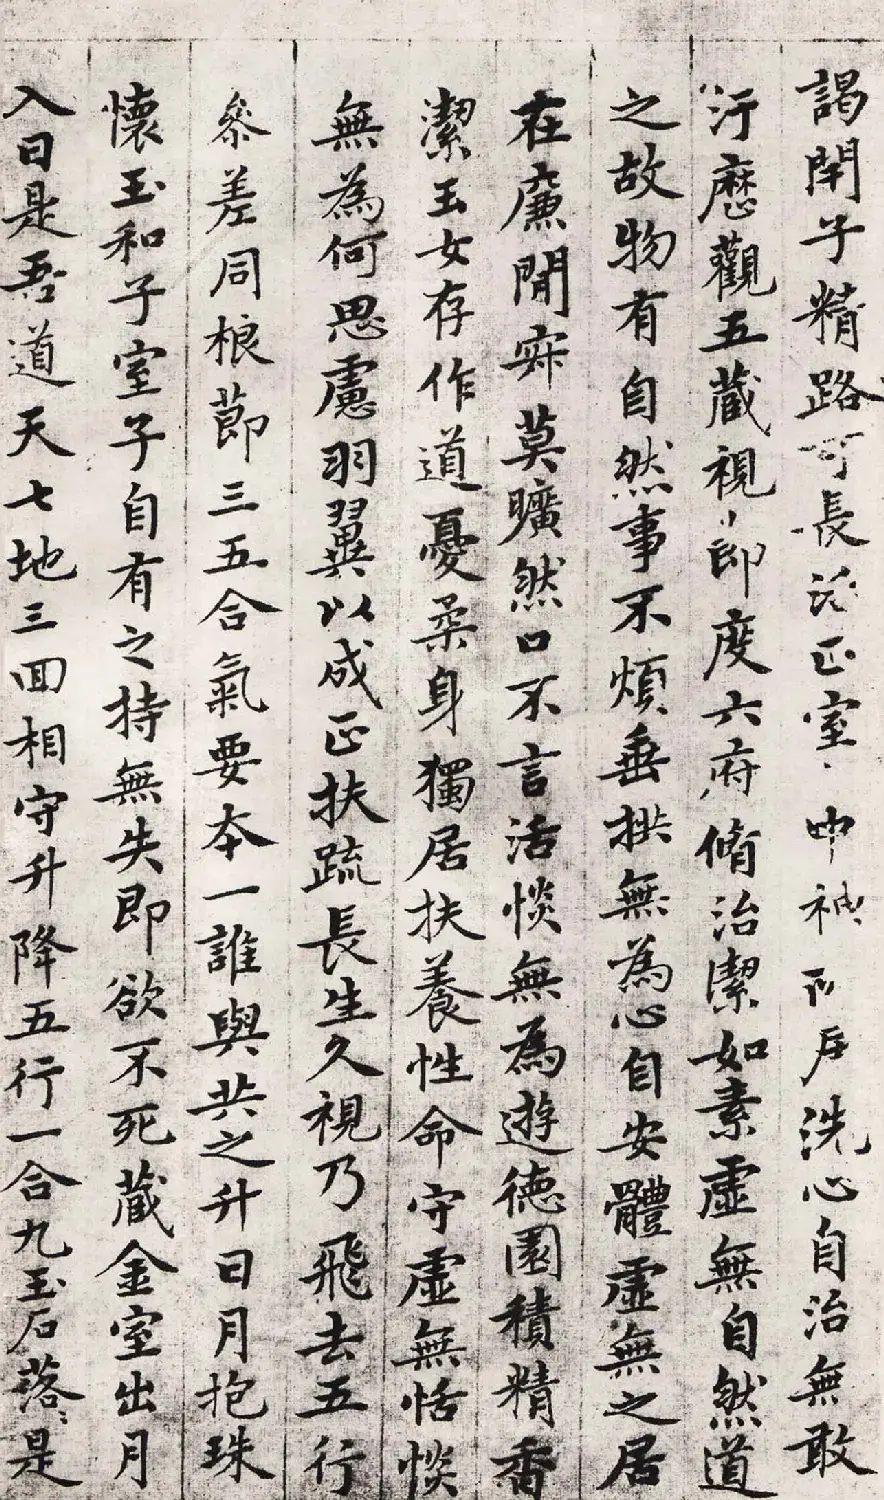 謁閇子精路可長活正室中神所居洗心自治無敢
汙歷觀五藏視節度六府脩治潔如素虛無自然道
之故物有自然事不煩垂拱無為心自安體虛無之居
在廉閒寂莫曠然口不言活惔無為遊德園積精香
潔玉女存作道憂柔身獨居扶養性命守虛無恬惔
無為何思慮羽翼以成正扶疏長生久視乃飛去五行
參差同根節三五合氣要本一誰與共之升日月抱珠
懷玉和子室子自有之持無失即欲不死藏金室出月
入日是吾道天七地三回相守升降五行一合九玉石落〻是